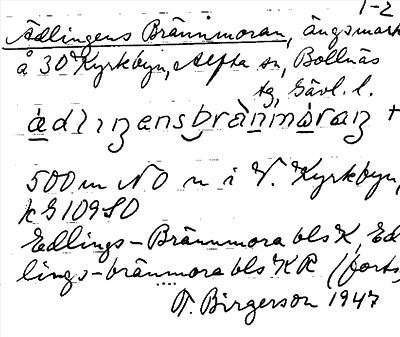 1-2
Ädlingens Brännmoran, ängsmark
å 30 Kyrkbyn, Alfta sn, Bollnäs
tg, Gävl. l.
500 m NO n i V. Kyrkbyn,
k G109 SO
Edlings-Brännmora bls K, Ed-
lings-brännmora bls KR (forts,
T. Birgerson 1947